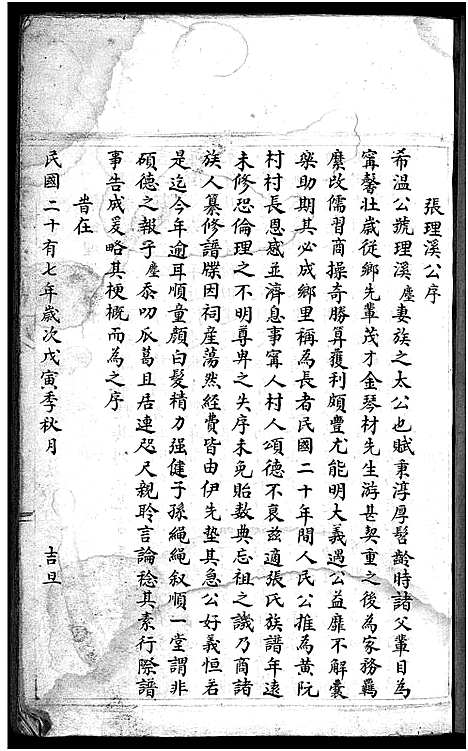 張理溪公序
希溫公號理溪塵妻族之太公也賦秉淳厚髫齡時諸父輩目為
甯馨壯歲從鄉先輩茂才金琴材先生游甚契重之後為家務羈
縻改儒習商操奇勝算獲利頗豐尤能明大義遇公益靡不解囊
樂助期其必成鄉里稱為長者民國二十年間人民公推為黃阮
村村長恩感並濟息事甯人村人頌德不衰茲適張氏族譜年遠
未修恐倫理之不明尊卑之失序未免貽數典忘祖之譏乃商諸
族人纂修譜牒因祠産蕩然經費皆由伊先墊其急公好義恒若
是迄今年逾耳順童顏白髮精力强健子孫繩繩叙順一堂謂非
碩德之報乎塵忝叨瓜葛且居連咫尺親聆言論稔其素行際譜
事告成爰略其梗概而為之序
旹在
民國二十有七年歲次戊寅季秋月 吉旦